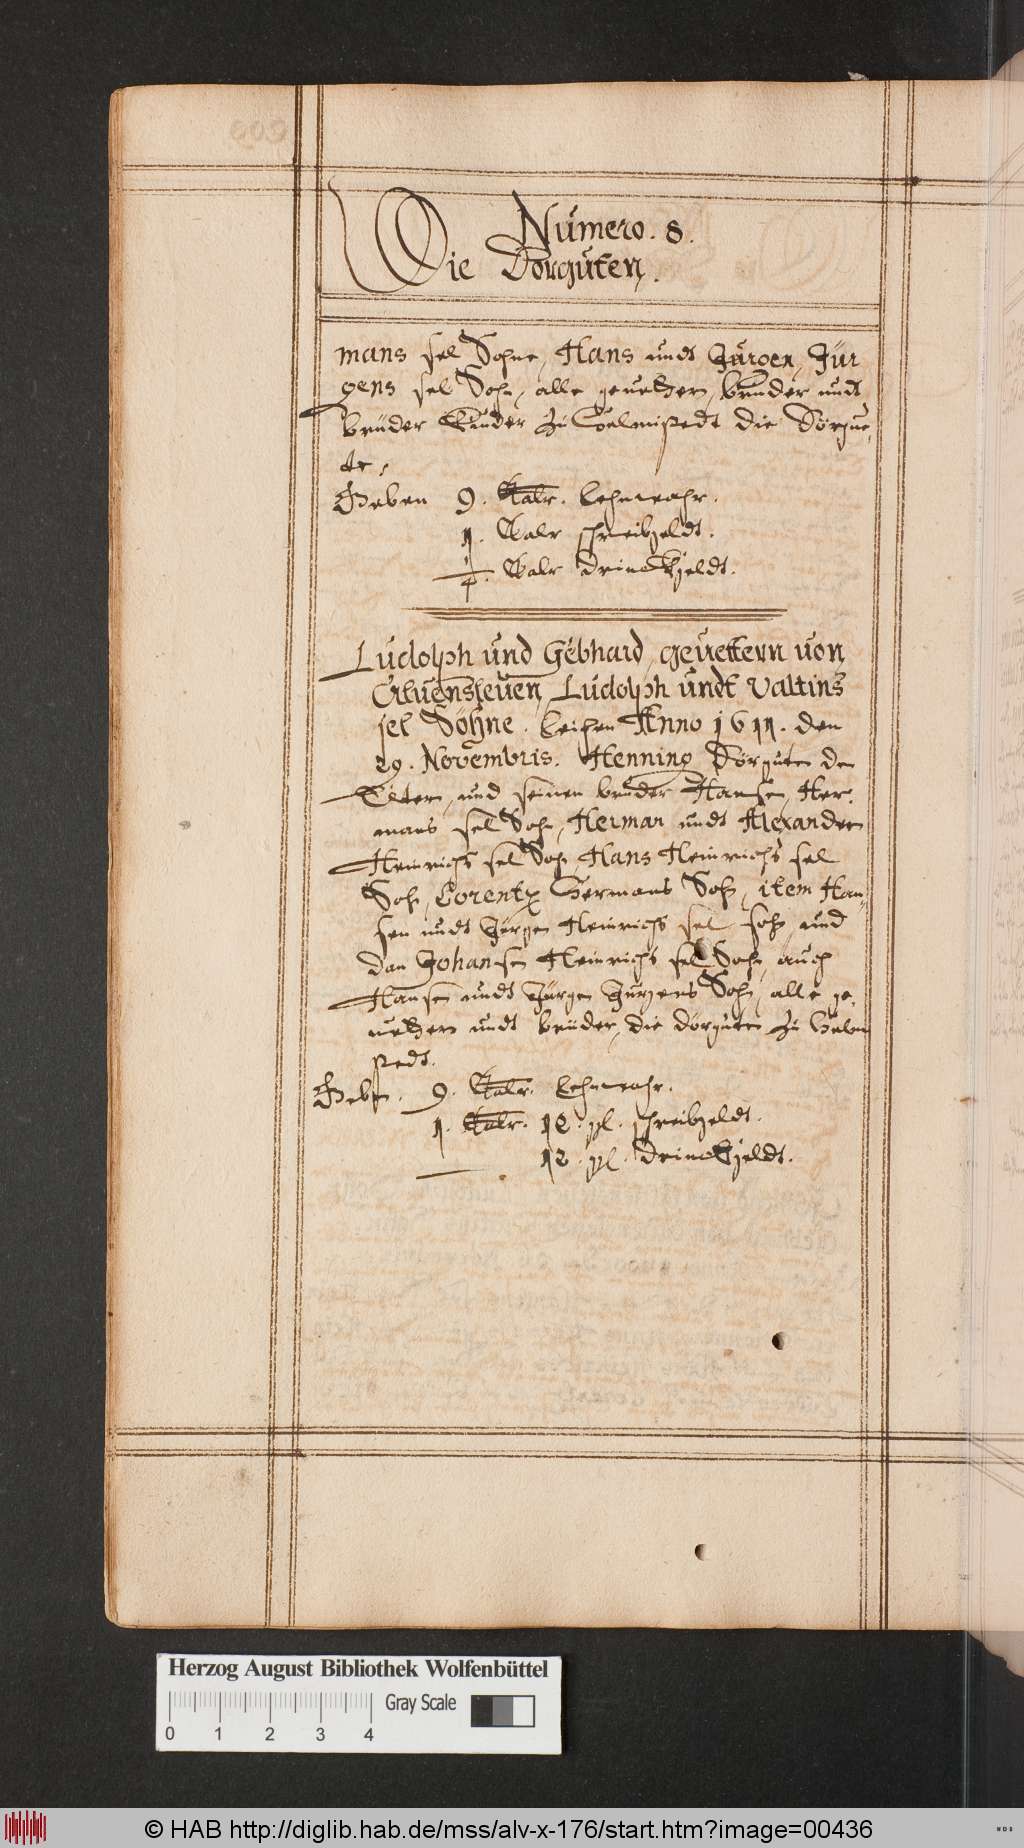 Numero. 8.
Die Dorguten.
mans sel Sohne, Hans undt Jurgen, Jür
gens sel Sohn, alle gevettern, bruder undt
brüder Kinder zu Helmstedt die Dörgue
te,
Geben 9. Talr. Lehnwahr.
1. Talr schreibgeldt.
1/4. Talr Drinckgeldt.
Ludolph und Gebhard, gevettern von
Alvensleven, Ludolph undt Valtins
sel Söhne. Leihen Anno 1611. den
29. Novembris. Henning Dörguten den
Eltern, und seinen bruder Hansen, Her,
mans sel Sohn, Herman undt Alexandern
Heinrichs sel Soh, Hans Heinrichs sel
Soh, Lorentz Hermans Soh, item Han,
sen undt Jürgen Heinrichs sel soh, und
dan Johansen Heinrichs sel Sohn, auch
Hansen undt Jürgen Jurgens Sohn, alle ge,
vettern undt brüder, die dörguten zu Helm
stedt.
Geben. 9. Talr. Lehnwahr.
1. Talr. 12. gl. schreibgeldt.
12. gl. Drinckgeldt.
Herzog August Bibliothek Wolfenbüttel
Gray Scale
0 1 2 3 4
© HAB http://diglib.hab.de/mss/alv-x-176/start.htm?image=00436